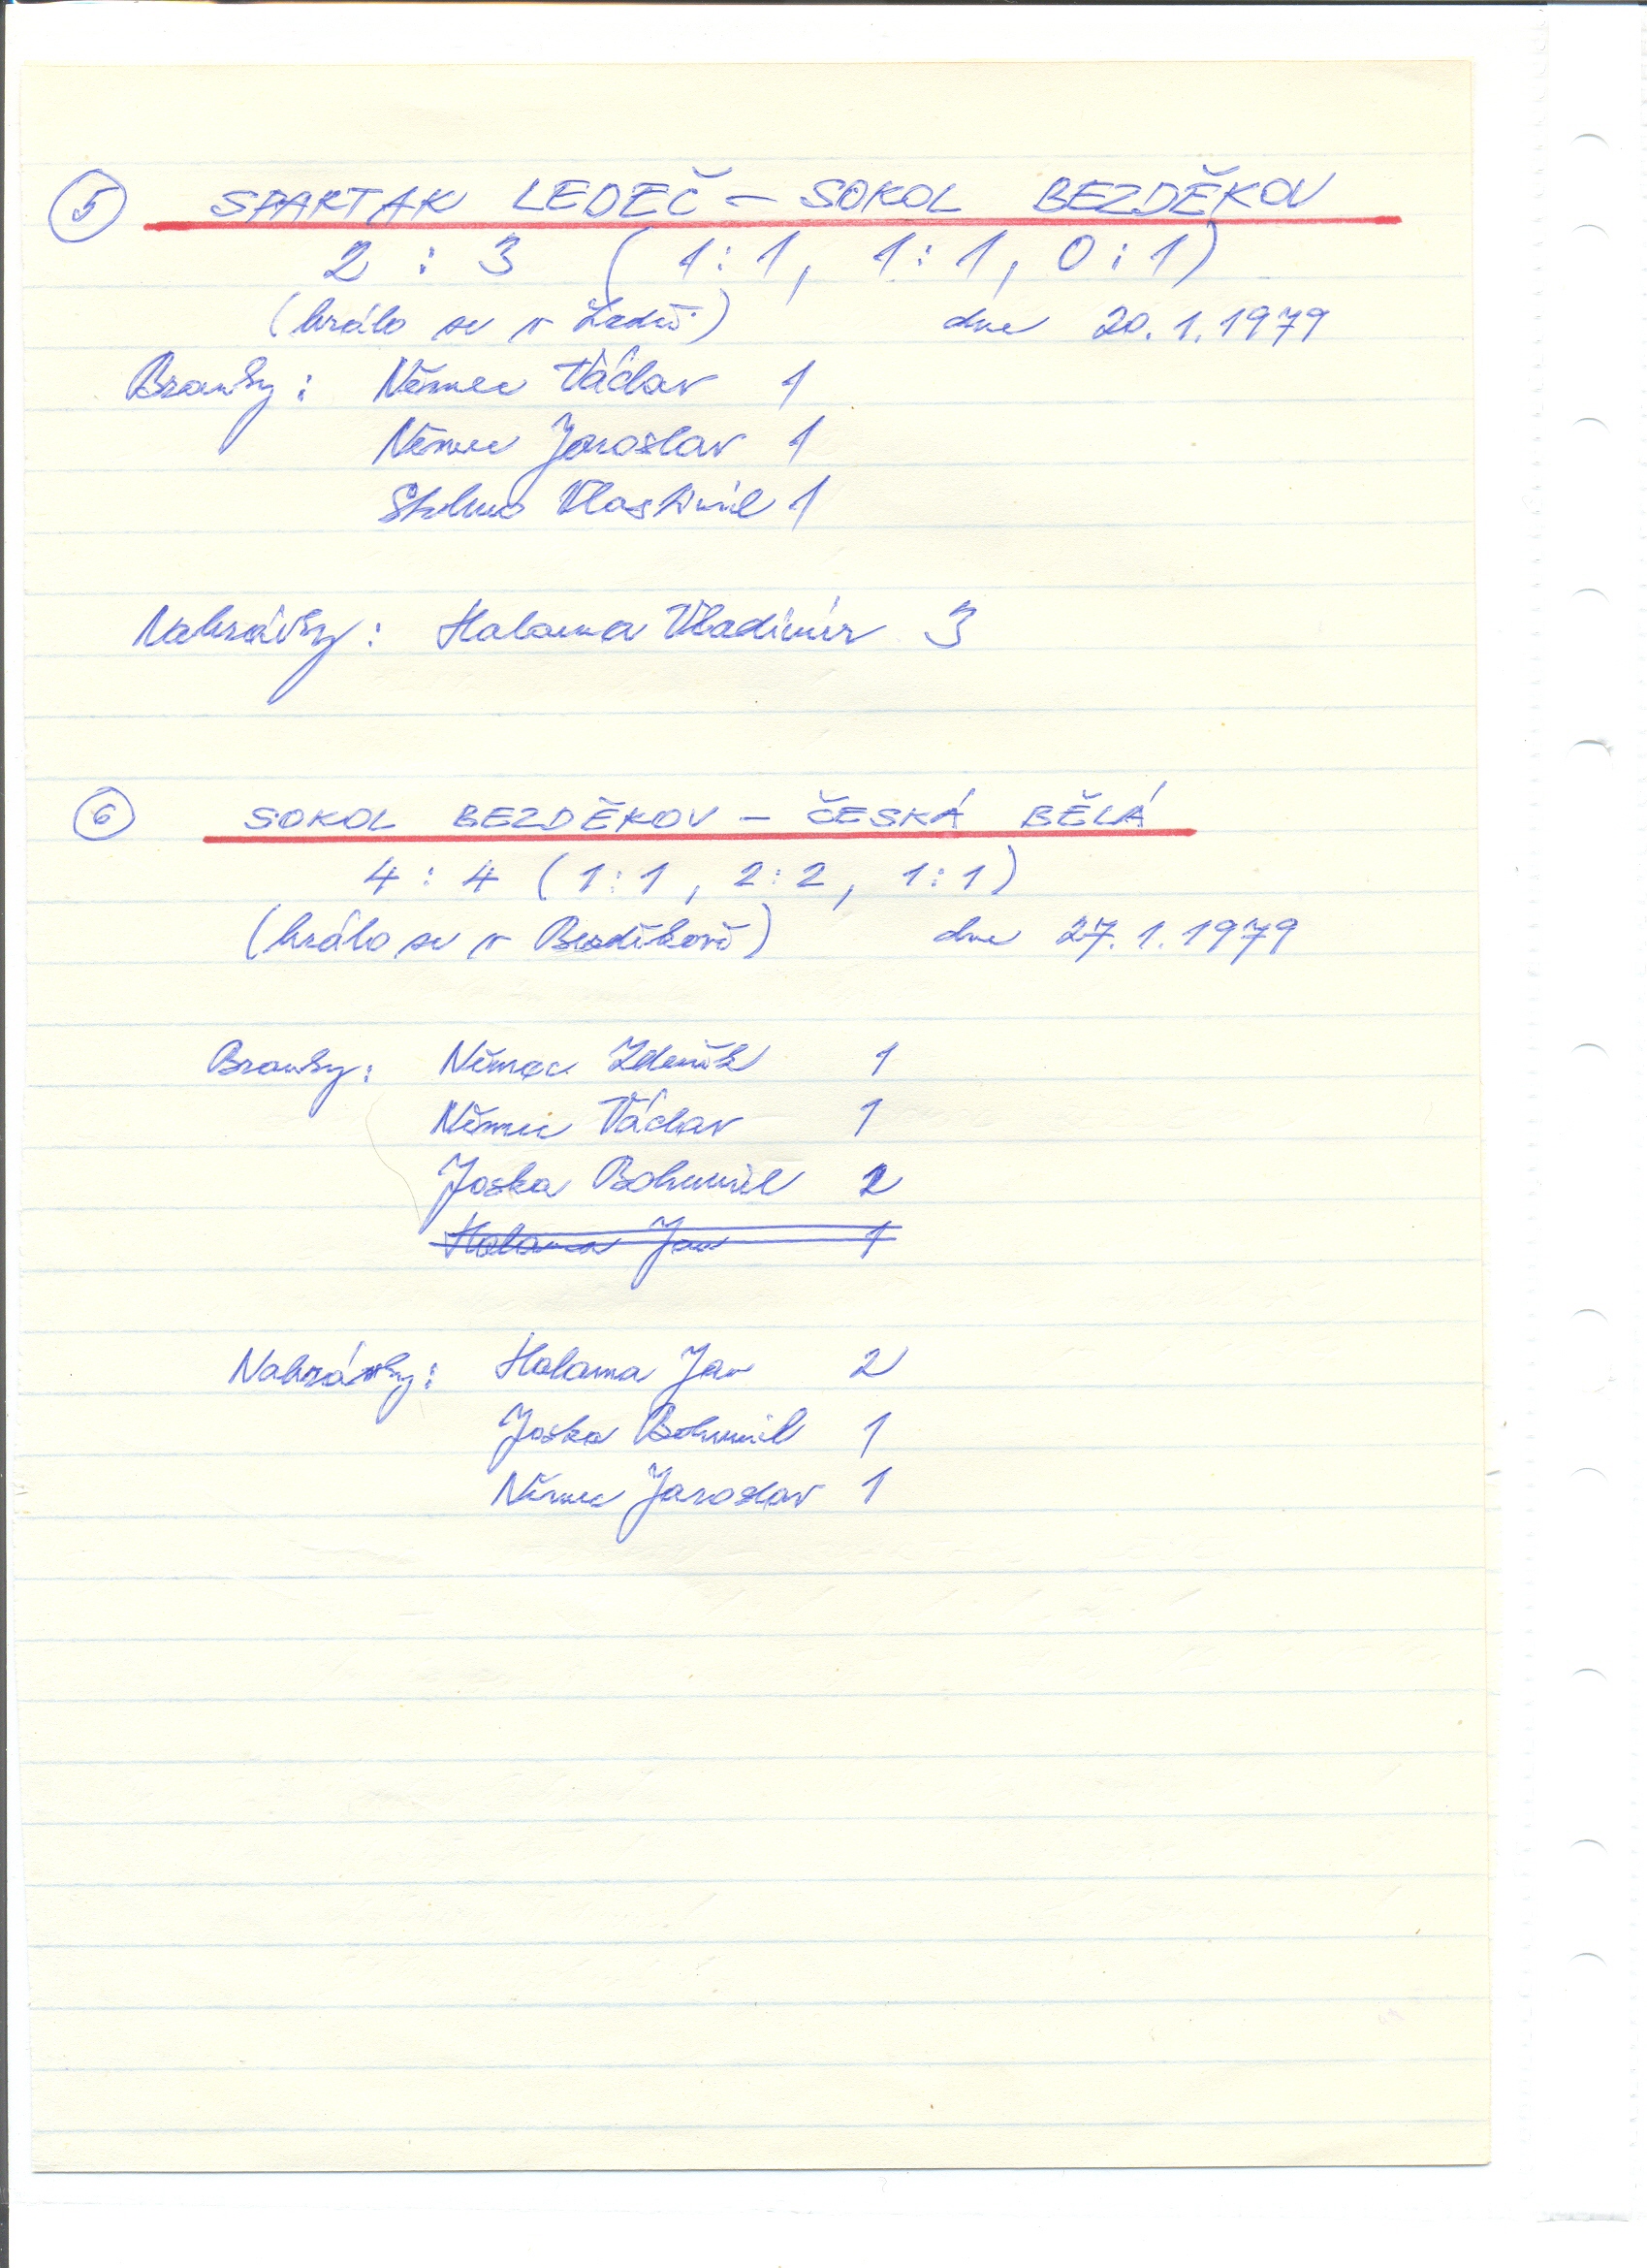 5 SPARTAK LEDEČ - SOKOL BEZDĚKOV
2 : 3 (1:1, 1:1, 0:1)
(hrálo se v Ledči) dne 20.1.1979
Branky: Němec Václav 1
Němec Jaroslav 1
Vlastimil 1
Nahrávky: Halama Vladimír 3
6 SOKOL BEZDĚKOV - ČESKÁ BĚLÁ
4 : 4 (1:1, 2:2, 1:1)
(hrálo se v Bezděkově) dne 27.1.1979
Branky: Němec Zdeněk 1
Němec Václav 1
Joska Bohumil 2
Halama Jan 1
Nahrávky: Halama Jan 2
Joska Bohumil 1
Němec Jaroslav 1